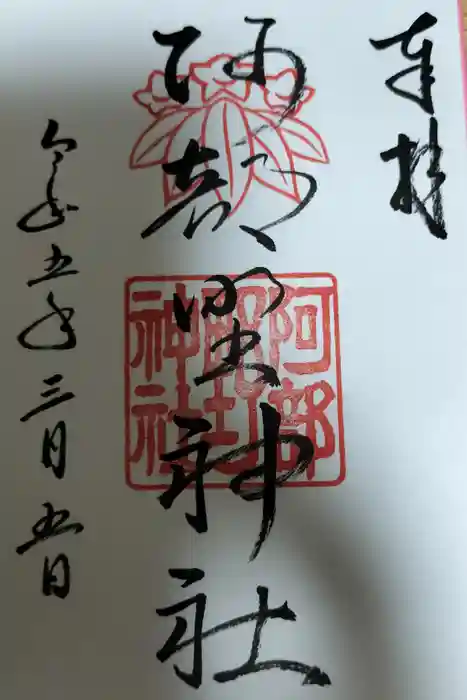 奉拝
阿部野神社
阿部野神社
令和五年三月五日